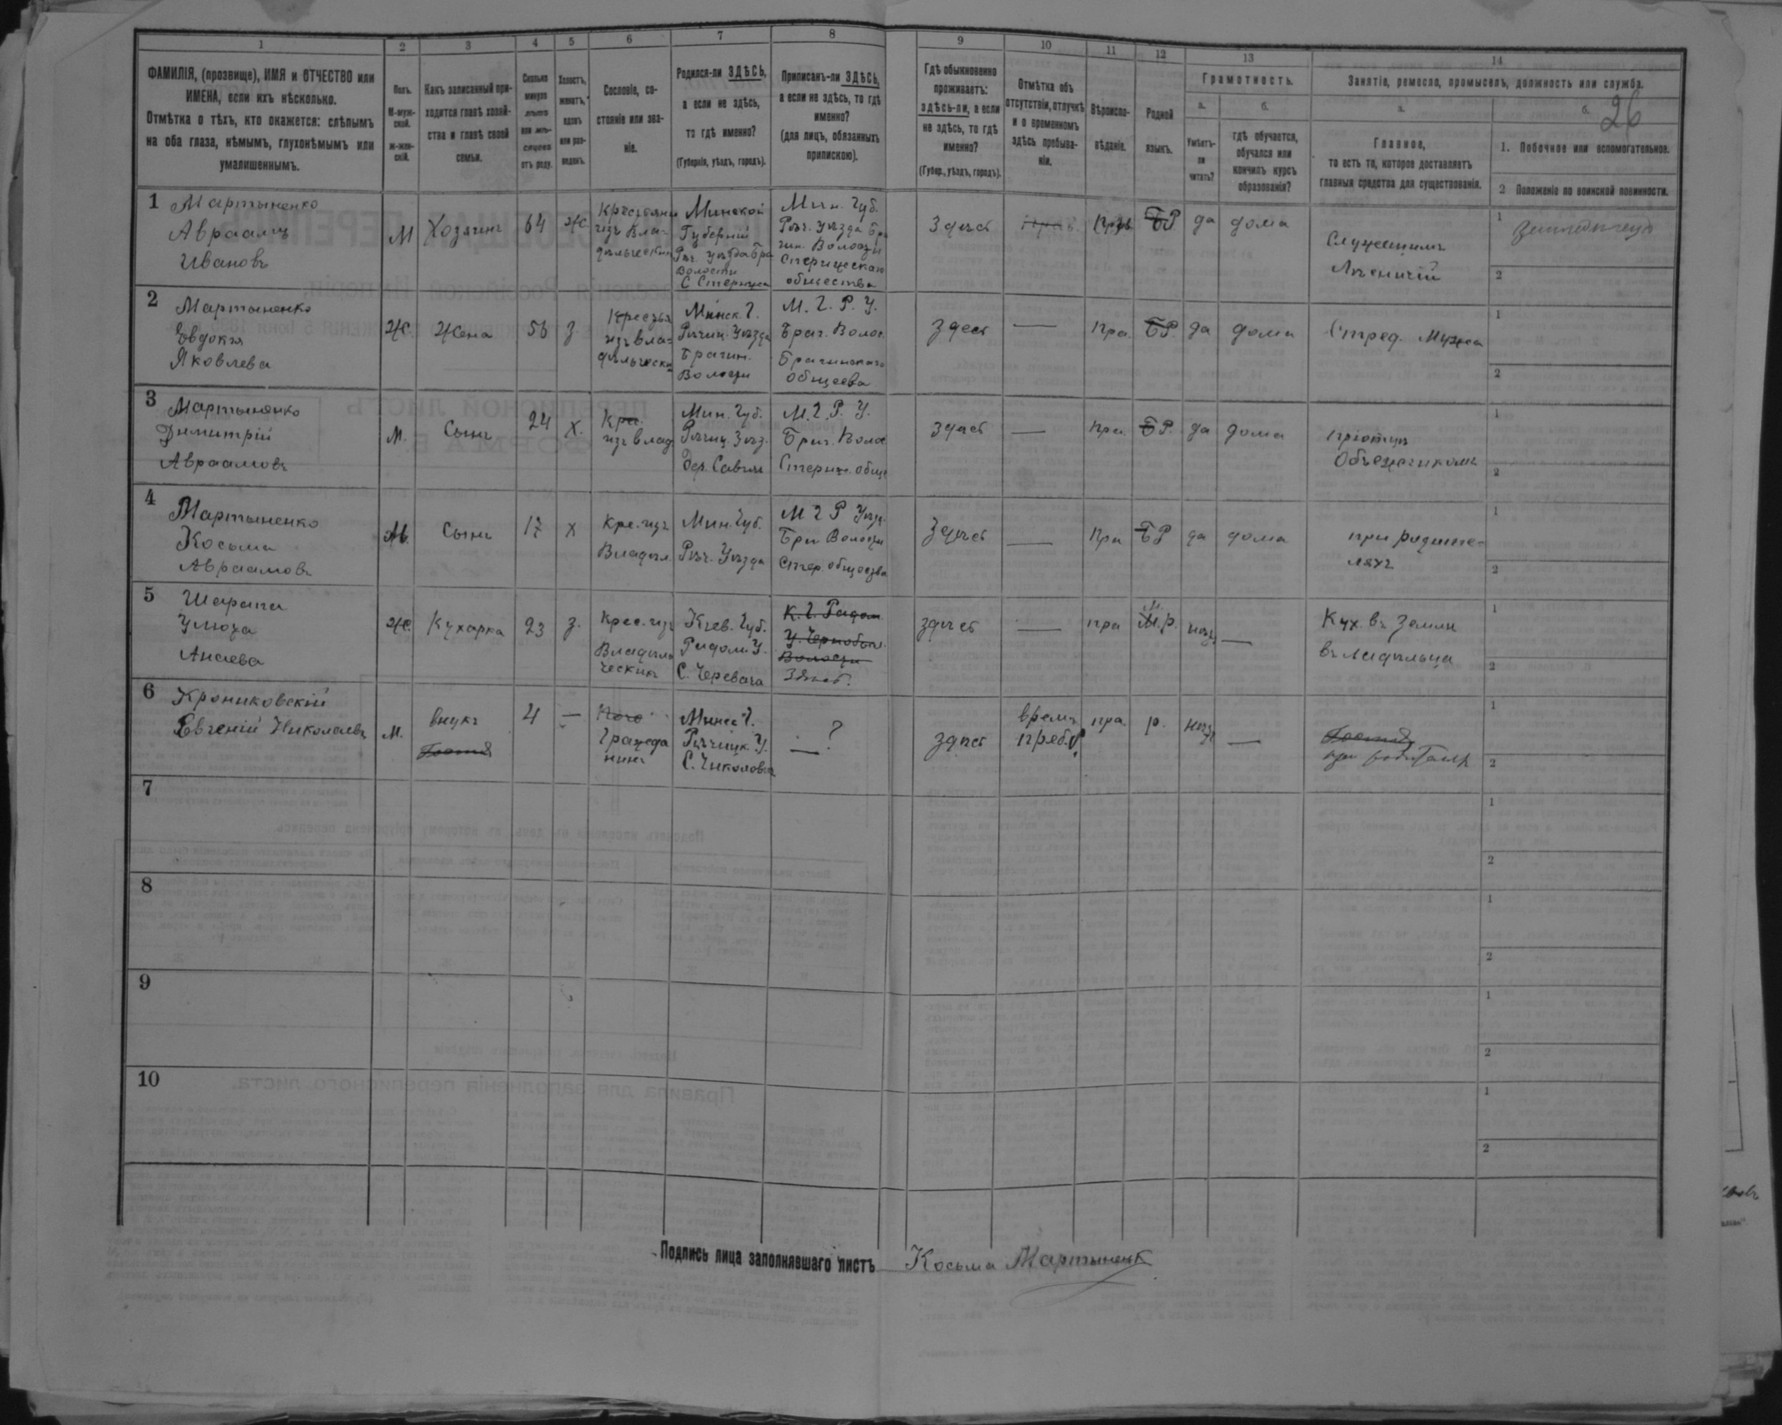 1 2 3 4 5 6 7 8 9 10 11 12 13 14
ФАМИЛІЯ, (прозвище), ИМЯ и ОТЧЕСТВО или
ИМЕНА, если ихъ нѣсколько.
Отмѣтка о тѣхъ, кто окажется: слѣпымъ
на оба глаза, нѣмымъ, глухонѣмымъ или
умалишеннымъ.
Полъ.
М-муж-
ской.
ж-жен-
скій.
Какъ записанный при-
ходится главѣ хозяй-
ства и главѣ своей
семьи.
Сколько
минуло
лѣтъ
или мѣ-
сяцевъ
отъ роду.
Холостъ,
женатъ,
вдовъ
или раз-
веденъ.
Сословіе, со-
стояніе или зва-
ніе.
Родился-ли ЗДѢСЬ,
а если не здѣсь,
то гдѣ именно?
(Губернія, уѣздъ, городъ).
Приписанъ-ли ЗДѢСЬ,
а если не здѣсь, то гдѣ
именно?
(для лицъ, обязанныхъ
припискою).
Гдѣ обыкновенно
проживаетъ:
здѣсь-ли, а если
не здѣсь, то гдѣ
именно?
(Губер., уѣздъ, городъ).
Отмѣтка объ
отсутствіи, отлучкѣ
и о временномъ
здѣсь пребыва-
ніи.
Вѣроиспо-
вѣданіе.
Родной
языкъ.
Грамотность.
а.
Умѣетъ-
ли
читать?
б.
гдѣ обучается,
обучался или
кончилъ курсъ
образованія?
Занятіе, ремесло, промыселъ, должность или служба.
а.
Главное,
то есть то, которое доставляетъ
главныя средства для существованія.
б.
26
1. Побочное или вспомогательное.
2 Положеніе по воинской повинности.
1
Мартыненко
Авраамъ
Ивановъ
М
Хозяинъ
64
Ж
Крестьянин
изъ Вла-
дѣльческихъ
Минской
Губерніи
Рѣч. уѣзда Бра
Волости
С Стеричев
Мин. Губ.
Рѣч. Уѣзда Бра
гин. Волости
Стерическаго
общества
Здѣсь
Прав.
БР
да
дома
Служащимъ
Лѣсничій
1
2
2
Мартыненко
Евдокія
Яковлева
Ж.
Жена
56
З
Крестья
изъ вла-
дѣльчески
Минск. Г.
Рѣчиц. Уѣзда
Брагин.
Волости
М. Г. Р. У.
Браг. Волос
Брагинскаго
Общесва
Здесь
—
Пра.
БР.
да
дома
При сред. Мужа
1
2
3
Мартыненко
Димитрій
Авраамовъ
М.
Сынъ
24
Х.
Кре.
изъ влад
Мин. Губ.
Рѣчиц. Уѣз.
Дер. Савичи
М. Г. Р. У.
Браг. Волос
Стерич. общ.
Здѣсь
—
Пра
БР.
да
дома
Объездчикомъ
1
2
4
Мартыненко
Косьма
Авраамовъ
М.
Сынъ
17
Х
Кре. изъ
Владѣл.
Мин. Губ.
Рѣч. Уѣзда
М Г Р Уѣз.
Бра Волости
Стер. общества
Здѣсь
—
Пра
БР
да
дома
при родите-
ляхъ
1
2
5
Шарапа
Ж.
Кухарка
23
З.
Крес. изъ
Владѣль
ческихъ
Кіев. Губ.
Радом. У.
С. Черевача
К. Г. Радом
У. Чернобыл.
Волости
Здѣсь.
здѣсь
—
пра
М. р.
—
Кух. въ Земли
владѣльца
1
2
6
Крониковскій
Евгеній Николаевъ
М.
внукъ
4
—
Поче
Гражда
нинъ
Минск Г.
Рѣчицк. У.
С. Чиколовъ
— ?
здѣсь
врем.
преб.
пра
р.
—
при
1
2
7
1
2
8
1
2
9
1
2
10
1
2
Подпись лица заполнявшаго листъ Косьма Мартыненк